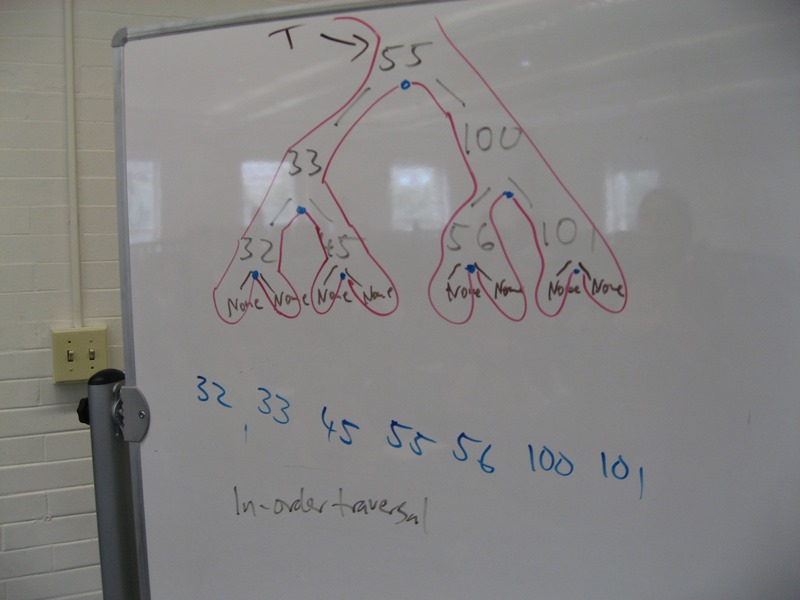 T → 55
33 100
32 45 56 101
None None None None None None None None
32, 33 45 55 56 100 101
In-order traversal